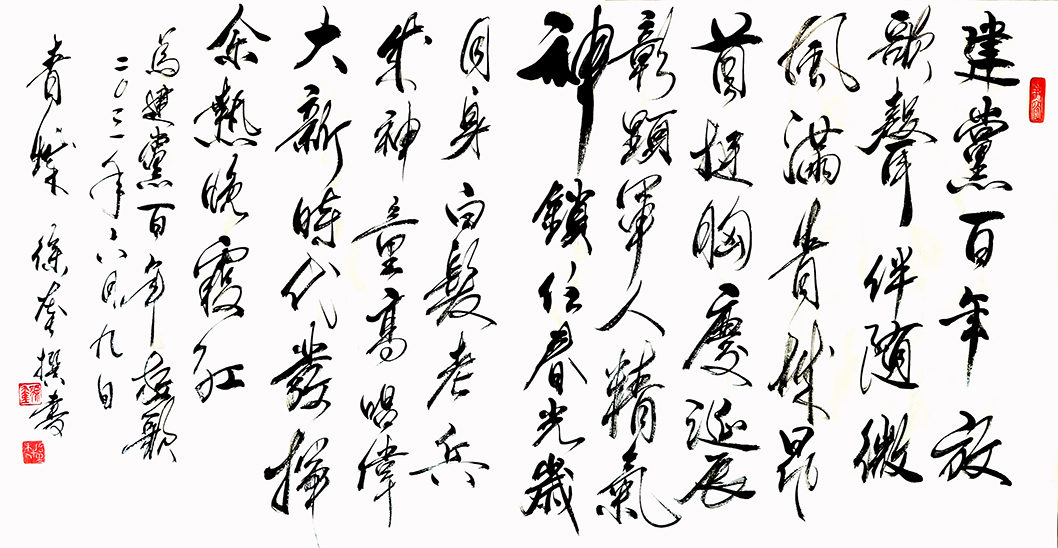 建黨百年放
歌聲伴隨微
風滿青城昂
首挺胸慶誕辰
彰顯軍人精氣
神鎖住春光歲
月身白髮老兵
來神童高唱偉
大新時代發揮
余熱晚霞紅
為建黨百年放歌
二〇二一年六月九日
青城 徐 撰書